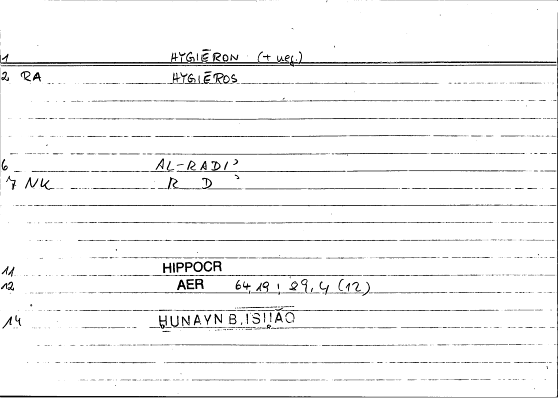 1 HYGIĒRON (+ neg.)
2 RA HYGIĒROS
6 AL-RADIʾ
7 NK R D ʾ
11 HIPPOCR
12 AER 64,19 ; 29,4 (12)
14 ḤUNAYN B. ISḤĀQ